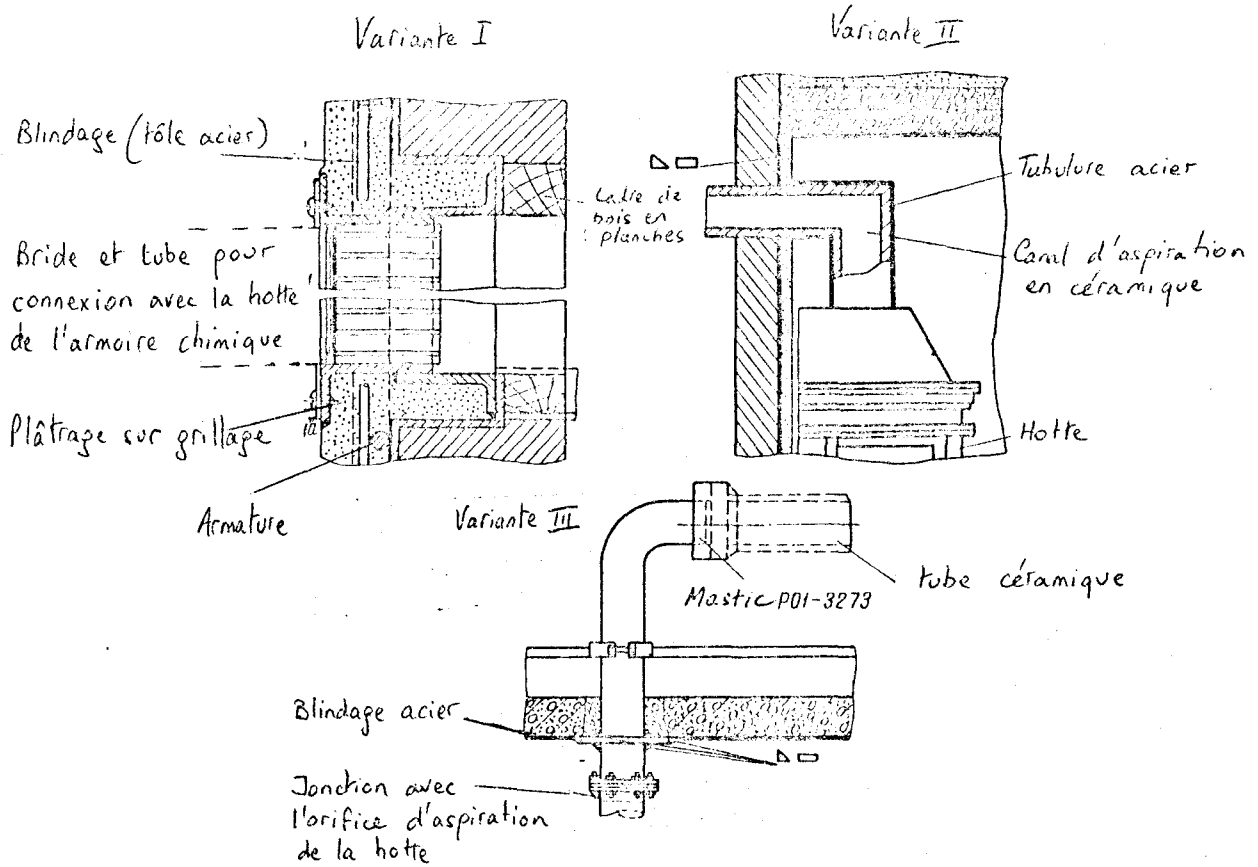 Variante I
Blindage (tôle acier)
Bride et tube pour
connexion avec la hotte
de l'armoire chimique
Plâtrage sur grillage
Armature
Cadre de
bois en
planches
Variante II
Tubulure acier
Canal d'aspiration
en céramique
Hotte
Variante III
Mastic P01-3273
tube céramique
Blindage acier
Jonction avec
l'orifice d'aspiration
de la hotte